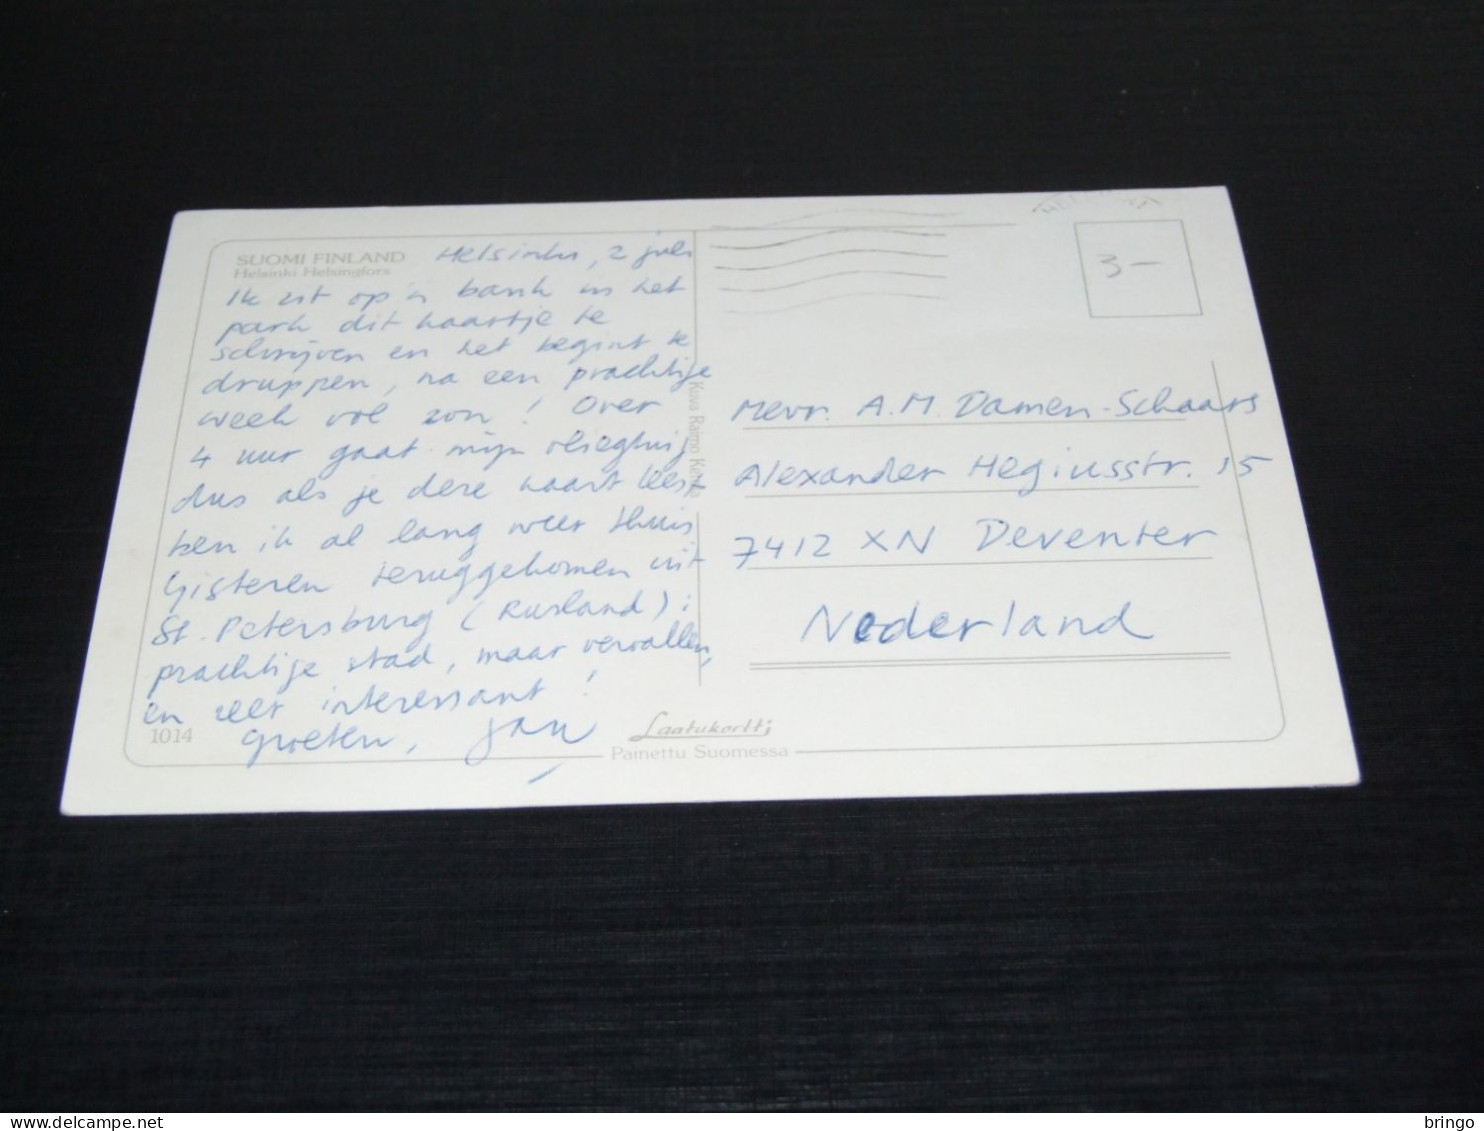 SUOMI FINLAND
Helsinki Helsingfors
Helsinki, 2 juli
Ik zit op 'n bank in het
park dit kaartje te
schrijven en het begint te
druppen, na een prachtige
week vol zon! Over
4 uur gaat mijn vliegtuig
dus als je deze kaart leest
ben ik al lang weer thuis
Gisteren teruggekomen uit
St. Petersburg (Rusland):
prachtige stad, maar vervallen,
en zeer interessant!
Groeten, Jan
1014
Kuva Raimo
Laatukortti
Painettu Suomessa
3-
Mevr. A.M. Damen-Schaars
Alexander Hegiusstr. 15
7412 XN Deventer
Nederland
www.delcampe.net
bringo